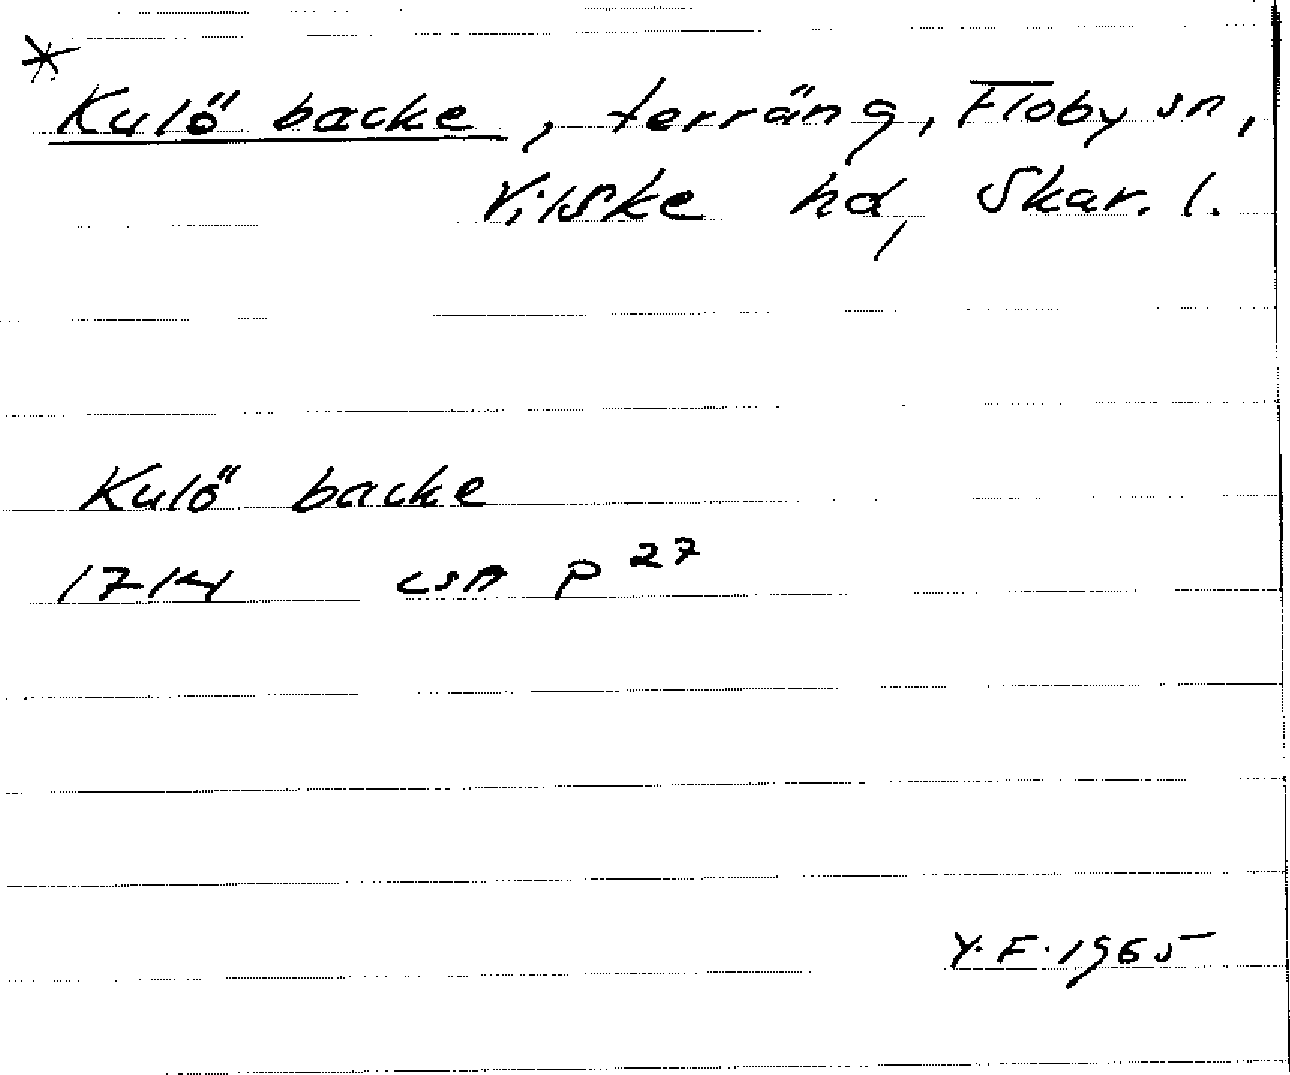 *
Kulö backe, terräng, Floby sn,
Vilske hd, Skar. l.
Kulö backe
1714 LSA P 27
Y. F. 1965